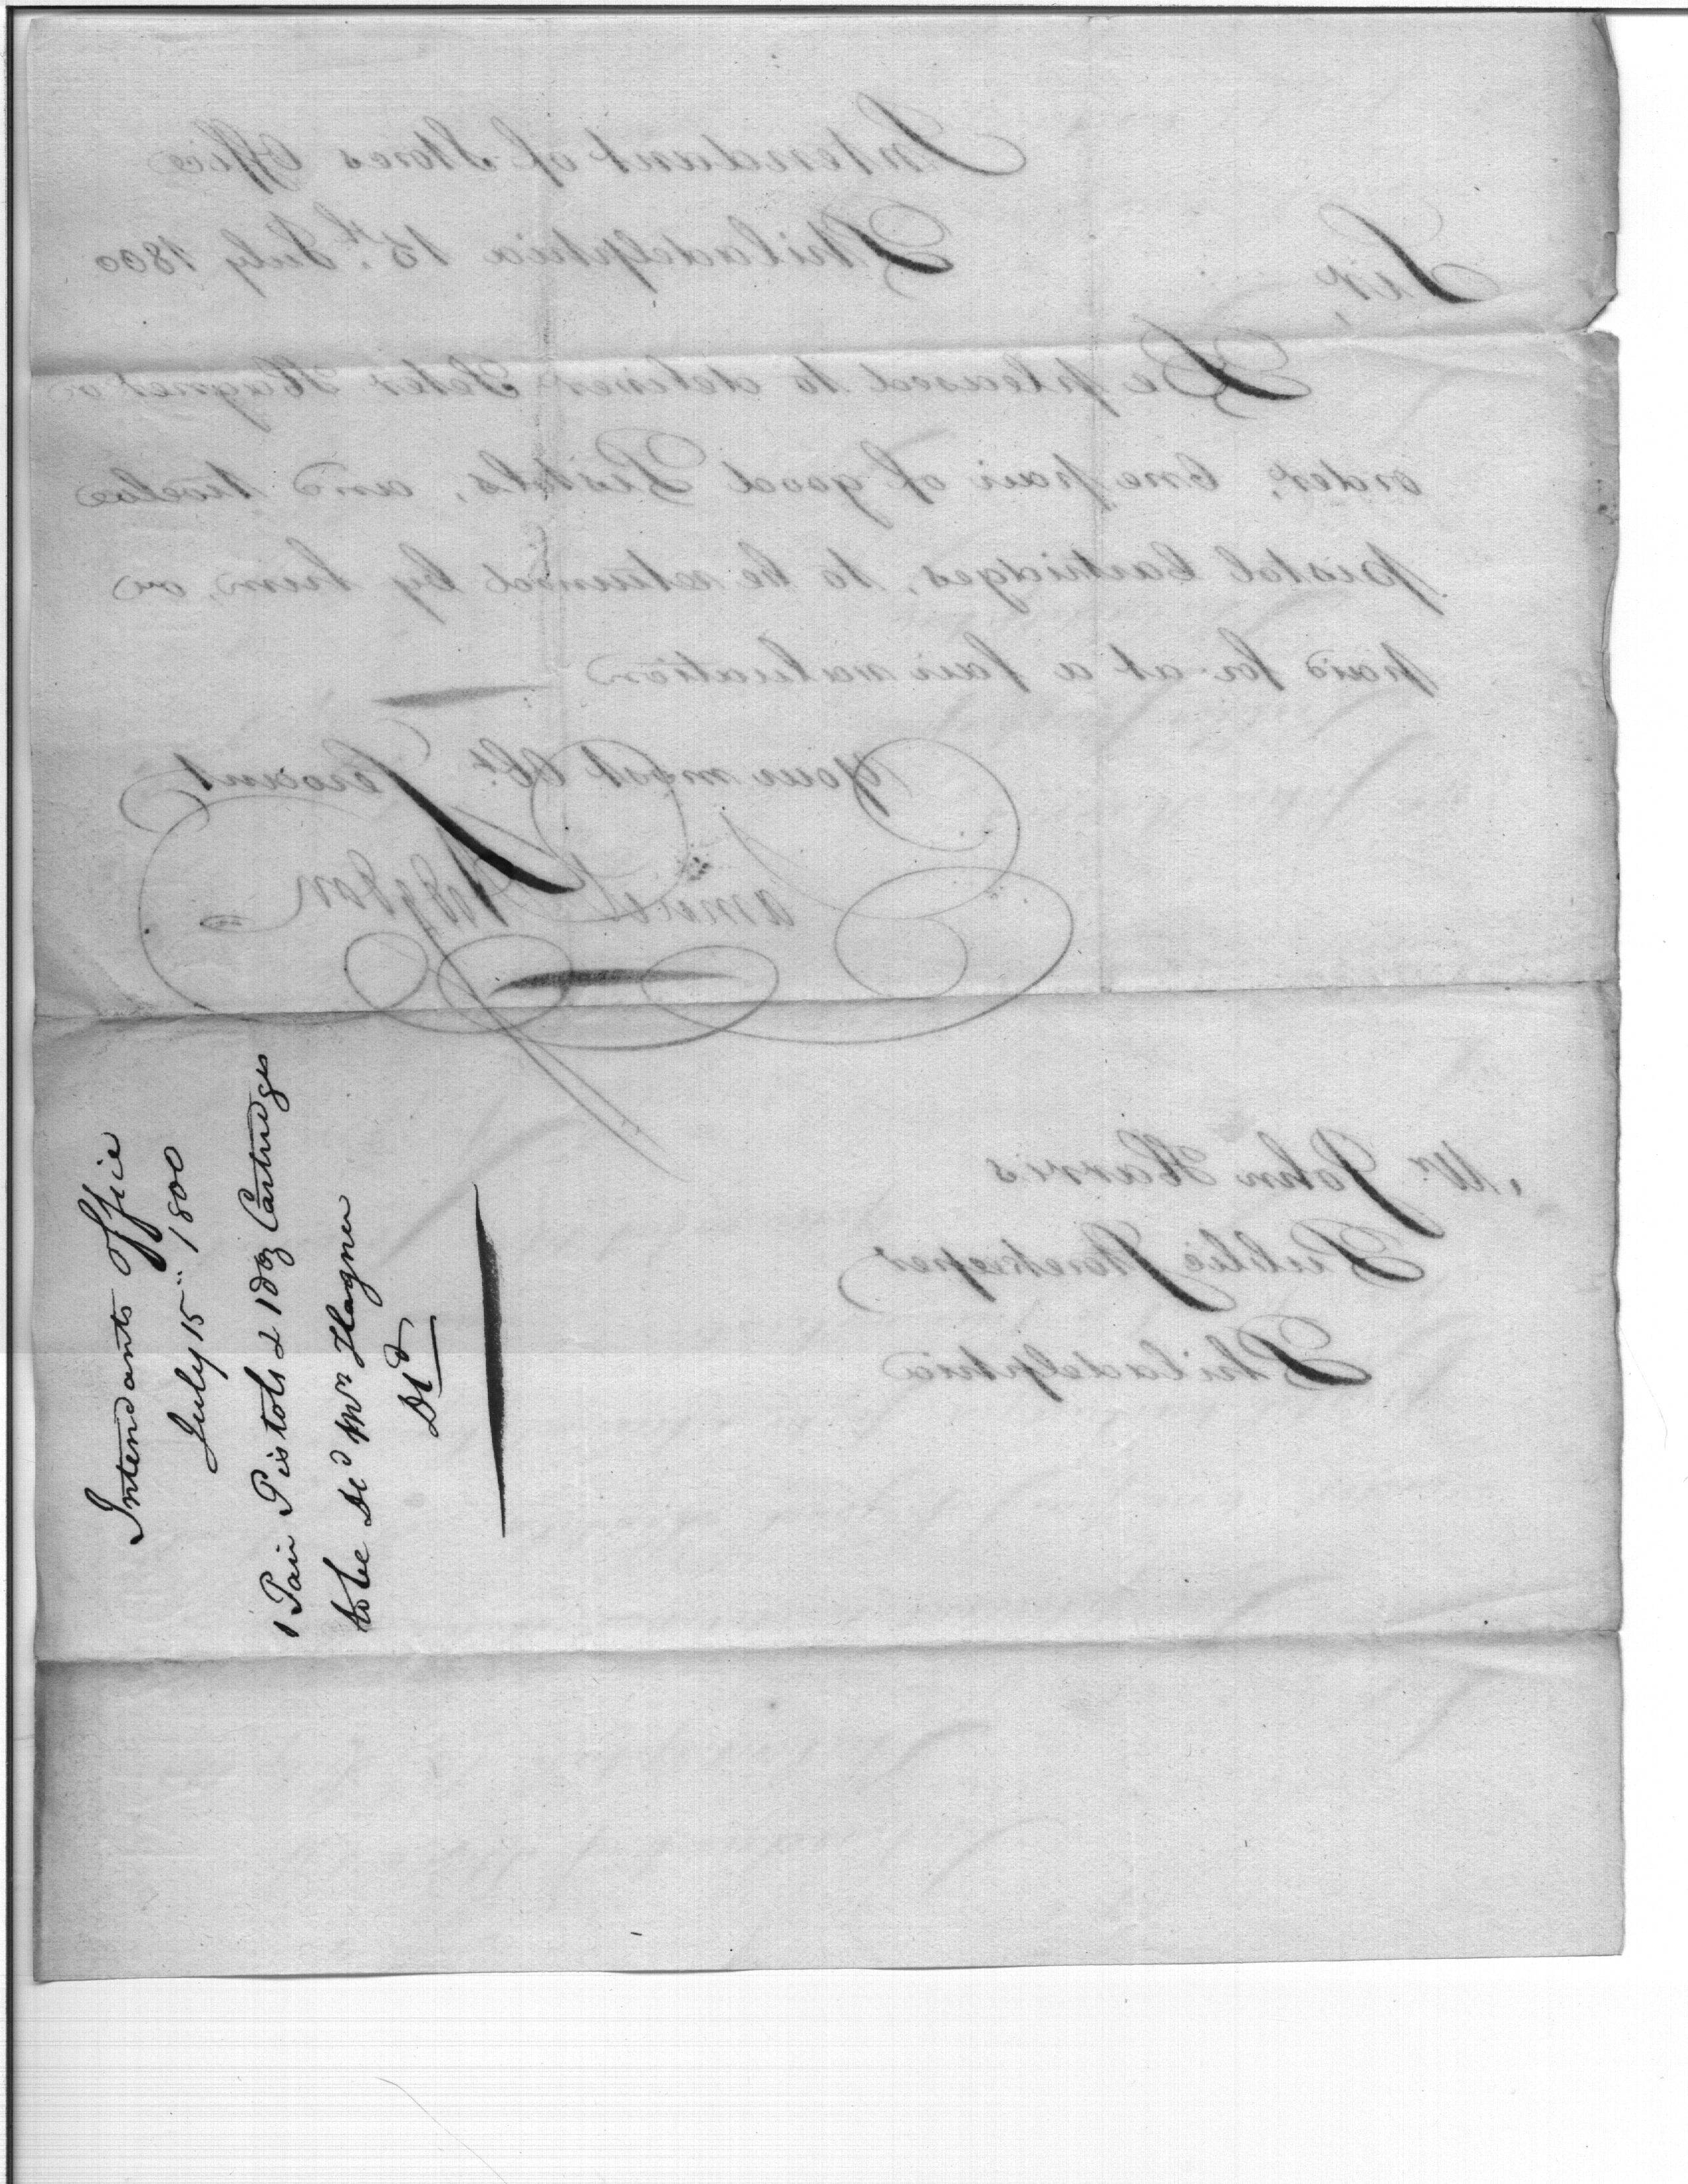 Intendant of Stores Office
Philadelphia 15th. July 1800
Sir,
Be pleased to deliver Peter Hagner or
order, One pair of good Pistols, and twelve
pistol Cartridges, to be returned by him, or
paid for at a fair valuation
Your most Obt. Servant
Samuel Hodgdon
Mr. John Harris
Public Storekeeper
Philadelphia
Intendants Office
July 15 1800
1 Pair Pistols & 1 doz Cartridges
to be Dd Mr Hagner